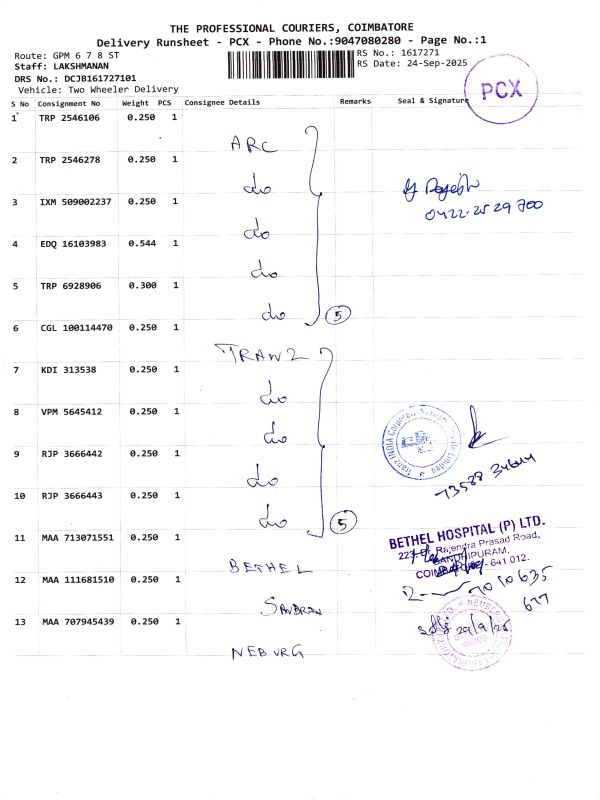 THE PROFESSIONAL COURIERS, COIMBATORE
Delivery Runsheet - PCX - Phone No.:9047080280 - Page No.:1
Route: GPM 6 7 8 ST
RS No.: 1617271
Staff: LAKSHMANAN
RS Date: 24-Sep-2025
DRS No.: DCJB161727101
Vehicle: Two Wheeler Delivery
PCX
S No Consignment No Weight PCS Consignee Details Remarks Seal & Signature
1 TRP 2546106 0.250 1
ARC
2 TRP 2546278 0.250 1
do
3 IXM 509002237 0.250 1
0422-2529700
do
4 EDQ 16103983 0.544 1
do
5 TRP 6928906 0.300 1
do 5
6 CGL 100114470 0.250 1
TRANZ
7 KDI 313538 0.250 1
do
8 VPM 5645412 0.250 1
do
9 RJP 3666442 0.250 1
do
10 RJP 3666443 0.250 1
do 5
11 MAA 713071551 0.250 1
BETHEL HOSPITAL (P) LTD.
Rajendra Prasad Road,
GANDHIPURAM,
COIMBATORE - 641 012.
BETHEL
12 MAA 111681510 0.250 1
13 MAA 707945439 0.250 1
NEBURG